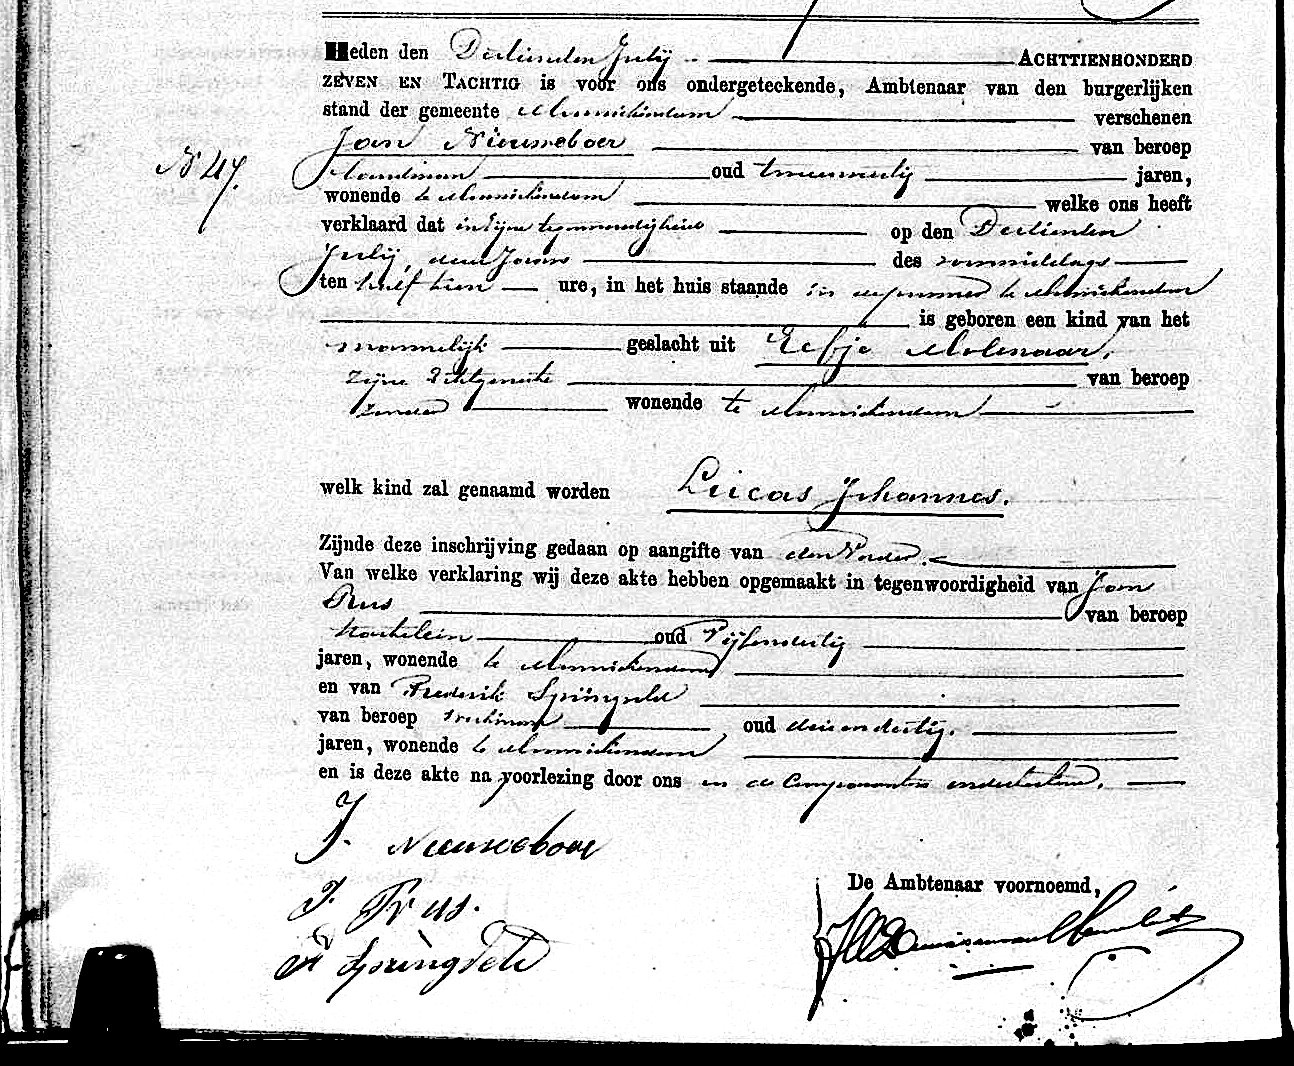 Heden den Dertienden Julij ACHTTIENHONDERD
ZEVEN EN TACHTIG is voor ons ondergeteekende, Ambtenaar van den burgerlijken
stand der gemeente Monnickendam verschenen
Jan Nieuweboer van beroep
N 47.
Landman oud jaren,
wonende te Monnickendam welke ons heeft
verklaard dat in zijne tegenwoordigheid op den Dertienden
Julij, dezes Jaars des voormiddags
ten half tien ure, in het huis staande in te Monnickendam
is geboren een kind van het
mannelijk geslacht uit Eefje Molenaar,
zijne Echtgenoote van beroep
zonder wonende te Monnickendam
welk kind zal genaamd worden Lucas Johannes.
Zijnde deze inschrijving gedaan op aangifte van den Vader.
Van welke verklaring wij deze akte hebben opgemaakt in tegenwoordigheid van Jan
van beroep
oud Vijfendertig
jaren, wonende te Monnickendam
en van Frederik Springveld
van beroep oud drieendertig.
jaren, wonende te Monnickendam
en is deze akte na voorlezing door ons en de Comparanten onderteekend.
J. Nieuweboer
De Ambtenaar voornoemd,
J.
F Springveld